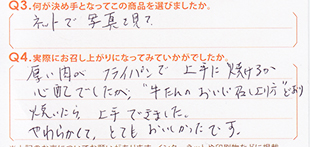 Q3.何が決め手となってこの商品を選びましたか。
ネットで写真を見て
Q4.実際にお召し上がりになってみていかがでしたか。
厚い肉が フライパンで 上手に 焼けるか
心配でしたが、"牛たんのおいしい召し上り方"どおり
焼いたら 上手できました。
やわらかくて、とても おいしかったです。